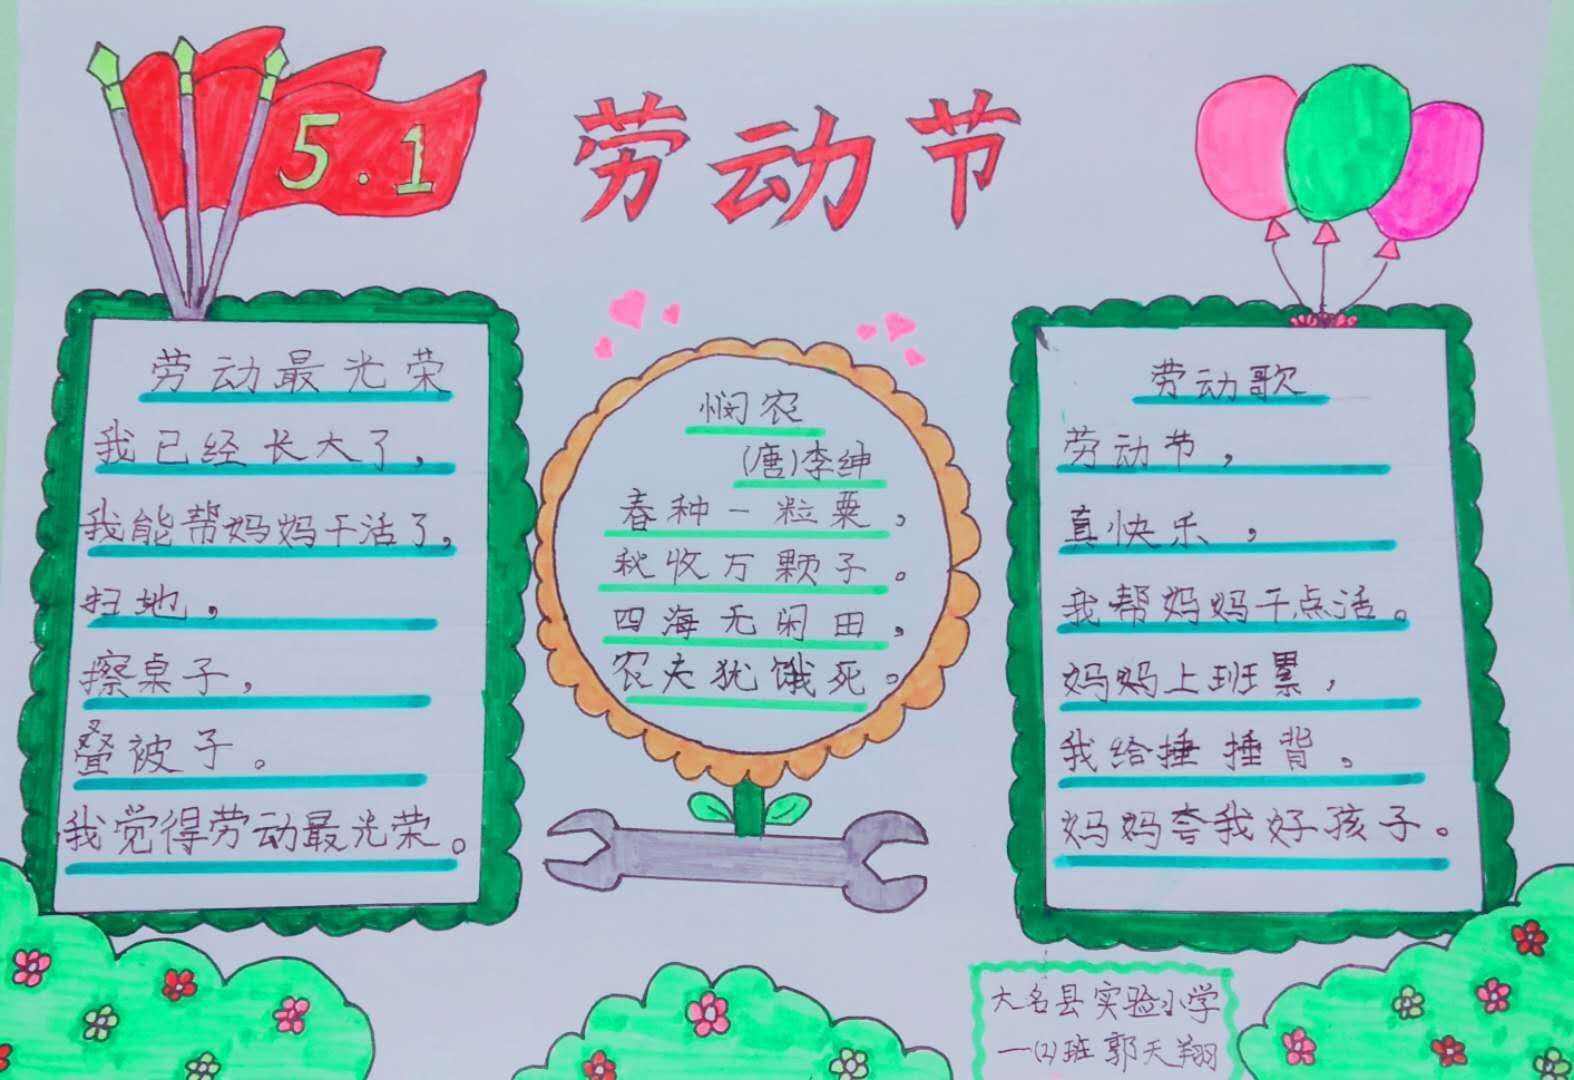 5.1
劳动节
劳动最光荣
我已经长大了，
我能帮妈妈干活了，
扫地，
擦桌子，
叠被子。
我觉得劳动最光荣。
悯农
(唐)李绅
春种一粒粟，
秋收万颗子。
四海无闲田，
农夫犹饿死。
劳动歌
劳动节，
真快乐，
我帮妈妈干点活。
妈妈上班累，
我给捶捶背。
妈妈夸我好孩子。
大名县实验小学
一(2)班郭天翔